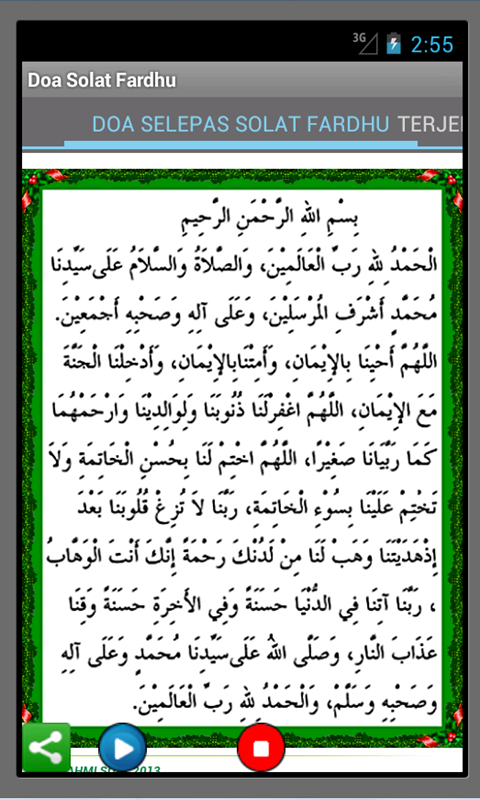 3G 2:55
Doa Solat Fardhu
DOA SELEPAS SOLAT FARDHU TERJE
بِسْمِ اللهِ الرَّحْمَنِ الرَّحِيمِ
الْحَمْدُ لِلهِ رَبِّ الْعَالَمِيْنَ، وَالصَّلَاةُ وَالسَّلَامُ عَلَى سَيِّدِنَا
مُحَمَّدٍ أَشْرَفِ الْمُرْسَلِيْنَ، وَعَلَى آلِهِ وَصَحْبِهِ أَجْمَعِيْنَ.
اللَّهُمَّ أَحْيِنَا بِالإِيْمَانِ، وَأَمِتْنَا بِالإِيْمَانِ، وَأَدْخِلْنَا الْجَنَّةَ
مَعَ الإِيْمَانِ، اللَّهُمَّ اغْفِرْلَنَا ذُنُوبَنَا وَلِوَالِدِيْنَا وَارْحَمْهُمَا
كَمَا رَبَّيَانَا صَغِيْرًا، اللَّهُمَّ اخْتِمْ لَنَا بِحُسْنِ الْخَاتِمَةِ وَلَا
تَخْتِمْ عَلَيْنَا بِسُوْءِ الْخَاتِمَةِ، رَبَّنَا لَا تُزِغْ قُلُوبَنَا بَعْدَ
إِذْهَدَيْتَنَا وَهَبْ لَنَا مِنْ لَدُنْكَ رَحْمَةً إِنَّكَ أَنْتَ الْوَهَّابُ
، رَبَّنَا آتِنَا فِي الدُّنْيَا حَسَنَةً وَفِي الأَخِرَةِ حَسَنَةً وَقِنَا
عَذَابَ النَّارِ، وَصَلَّى اللهُ عَلَى سَيِّدِنَا مُحَمَّدٍ وَعَلَى آلِهِ
وَصَحْبِهِ وَسَلَّمْ، وَالْحَمْدُ لِلهِ رَبِّ الْعَالَمِيْنَ.
2013